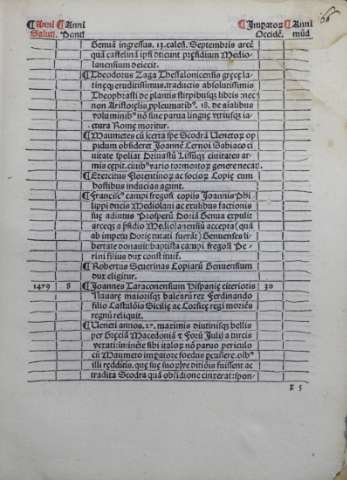 ¶Anni ¶Anni ¶Imperator ¶Anni
Saluti. Pont. Occidē. mūd
Genuā ingressus. 13. calen. Septembris arcē
quā castelinā ipsi dicunt presidium Medio
lanensium deiecit.
¶Theodorus Zaga Thessalonicensis grece la-
tineq; eruditissimus, traductis absolutissimis
Theophrasti de plantis stirpibusq; libris nec
non Aristotelis 18. de aīalibus
voluminibº nō sine parua lingue vtriusq; ia-
ctura Rome moritur.
¶Maumetes cū iterū spe Scodrā Venetor op-
pidum obsideret Joanne Lernoi Sabiaco ci
uitate spoliat Drinastū Lisseq; ciuitates ar-
mis cepit. ciuibº vario tormentor genere necat.
¶Exercitus Florentinor ac socior Lopie cum
hostibus inducias agunt.
¶Franciscº campi fregosi copiis Joannis Phi
lippi ducis Mediolani ac exulibus factionis
sue adiutus Prosperū Doriā Genua expulit
arceq; a psidio Mediolanensiū accepta (qua
ab impetu Dorie tuti fuerāt) Genuenses li-
bertate donauit baptista campi fregosi Pe-
rini filius dux constituit.
¶Robertus Seuerinas Lopiarū Genuensium
dux eligitur.
1479 8 ¶Joannes Taraconensium Hispanie citerioris 30
Nauare maiorisq; balearū rex Ferdinando
filio Castulōis Sicilie ac Corsice regi moriēs
regnū reliquit.
¶Veneti annos. 17. maximis diutinisq; bellis
per Greciā Macedoniā & Forū Julii a turcis
vexati: imīnēte sibi italoq; nō paruo periculo
cū Maumeto impatore foedus pcussere. ob
illi redditis. que sue ditiōis fuissent ac
tradita Scodra quā obsidione cinxerat: spon-
E 5